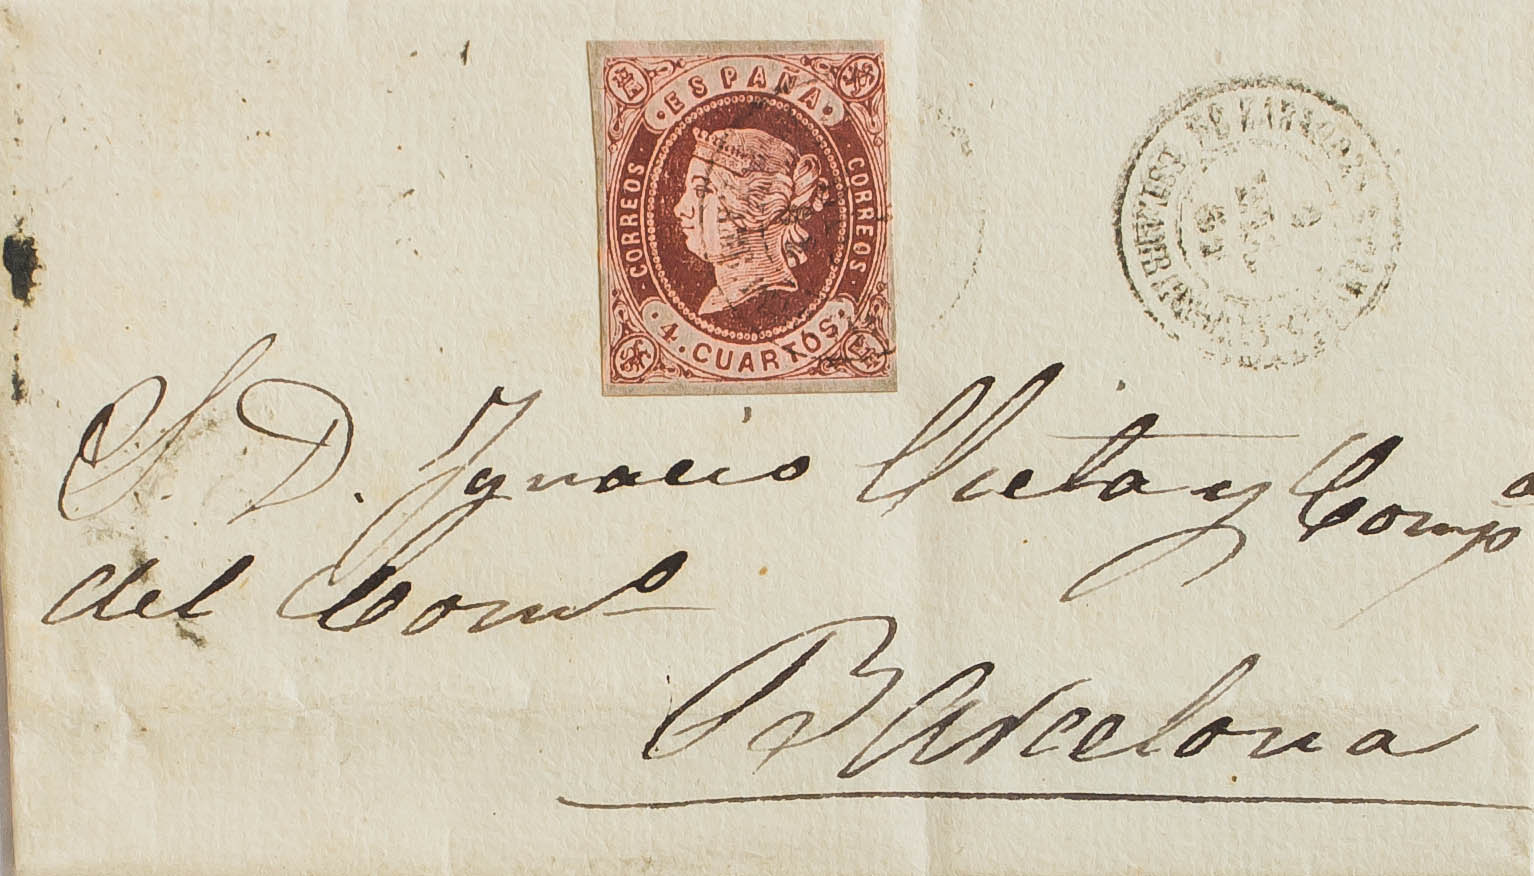 ESPAÑA
CORREOS
CORREOS
4. CUARTOS
S. D. Ignacio Vieta y Comp.a
del Com.o
Barcelona